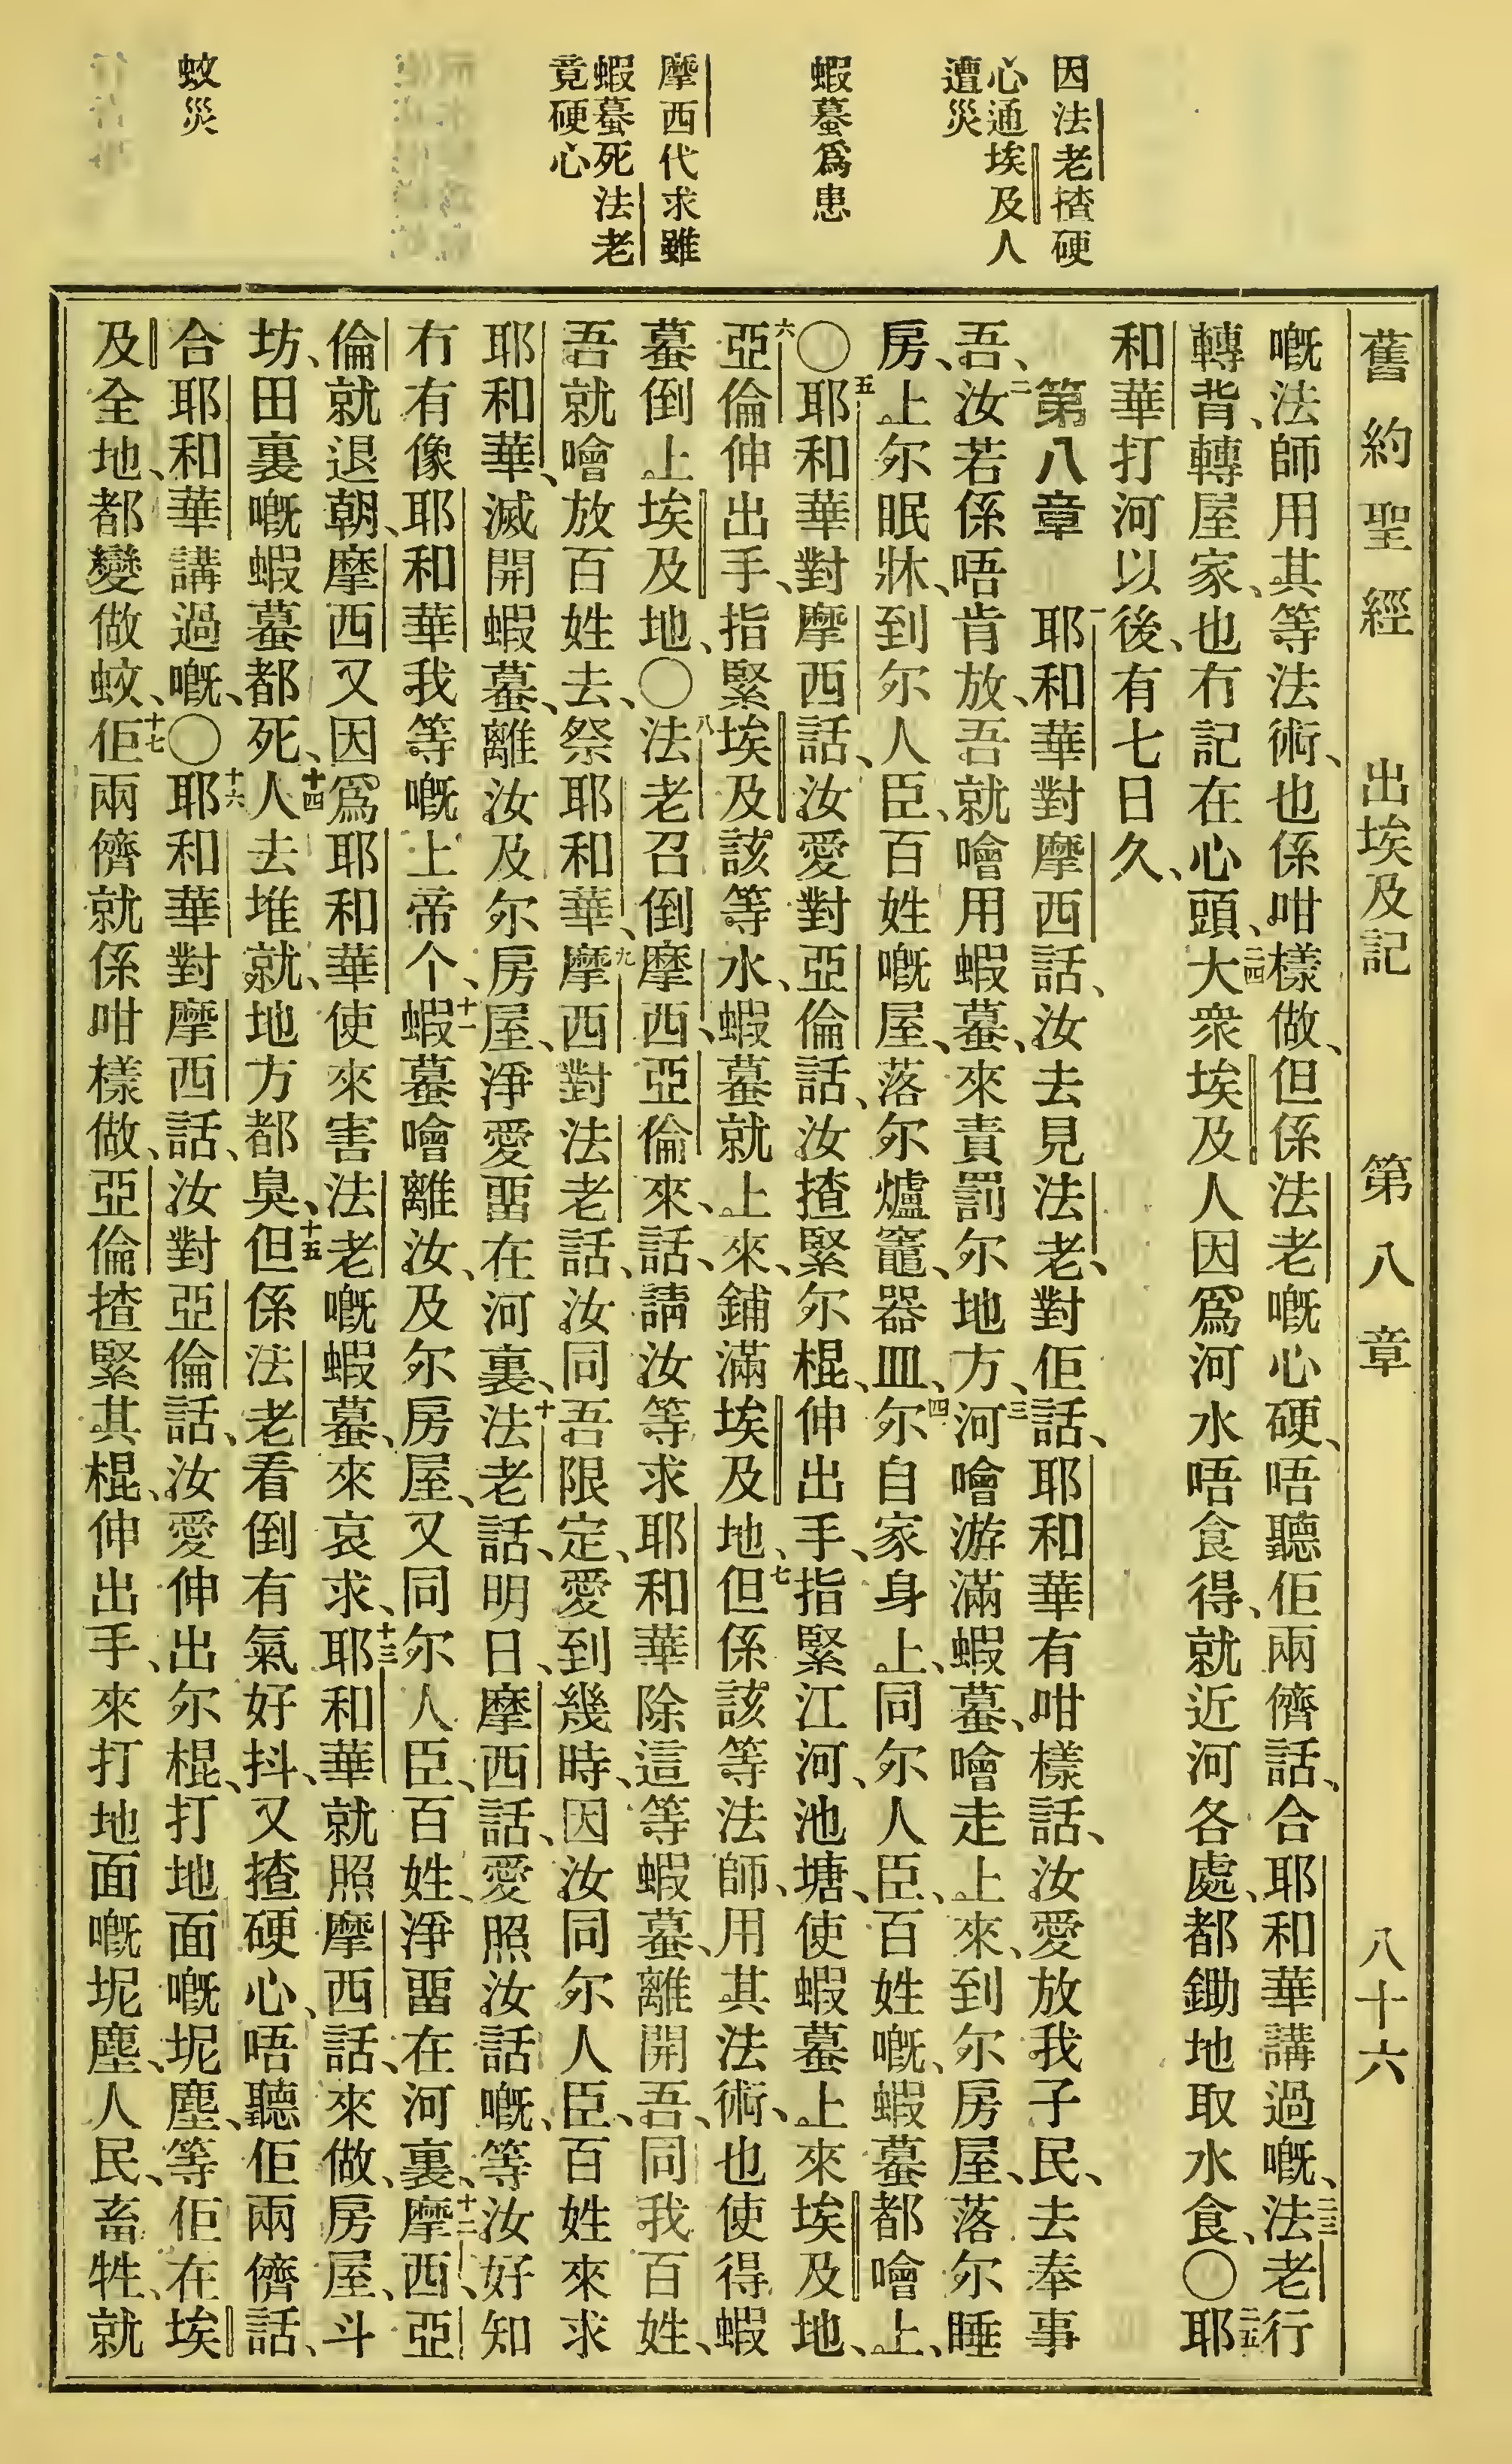 舊約聖經 出埃及記 第八章 八十六
因法老揸硬
心通埃及人
遭災
蝦蟇爲患
摩西代求雖
蝦蟇死法老
竟硬心
蚊災
嘅法師用其等法術、也係咁樣做、但係法老嘅心硬、唔聽佢兩儕話、合耶和華講過嘅、二三法老行
轉背、轉屋家、也冇記在心頭、二四大衆埃及人因爲河水唔食得、就近河各處、都鋤地取水食、〇二五耶
和華打河以後、有七日久、
第八章 一耶和華對摩西話、汝去見法老、對佢話、耶和華有咁樣話、汝愛放我子民、去奉事
吾、二汝若係唔肯放、吾就噲用蝦蟇、來責罰尔地方、三河噲游滿蝦蟇、噲走上來、到尔房屋、落尔睡
房、上尔眠牀、到尔人臣、百姓嘅屋、落尔爐竈、器皿、四尔自家身上、同尔人臣、百姓嘅、蝦蟇都噲上、
〇五耶和華對摩西話、汝愛對亞倫話、汝揸緊尔棍、伸出手、指緊江河、池塘、使蝦蟇上來埃及地、
六亞倫伸出手、指緊埃及該等水、蝦蟇就上來、鋪滿埃及地、七但係該等法師、用其法術、也使得蝦
蟇倒上埃及地、〇八法老召倒摩西、亞倫來、話、請汝等求耶和華除這等蝦蟇、離開吾、同我百姓、
吾就噲放百姓去、祭耶和華、九摩西對法老話、汝同吾限定、愛到幾時、因汝同尔人臣、百姓來求
耶和華、滅開蝦蟇、離汝及尔房屋、淨愛畱在河裏、十法老話、明日、摩西話、愛照汝話嘅、等汝好知
冇有像耶和華我等嘅上帝个、十一蝦蟇噲離汝、及尔房屋、又同尔人臣、百姓、淨畱在河裏、十二摩西、亞
倫就退朝、摩西又因爲耶和華使來害法老嘅蝦蟇、來哀求、十三耶和華就照摩西話、來做、房屋、斗
坊、田裏嘅蝦蟇都死、十四人去堆就、地方都臭、十五但係法老看倒有氣好抖、又揸硬心、唔聽佢兩儕話、
合耶和華講過嘅、〇十六耶和華對摩西話、汝對亞倫話、汝愛伸出尔棍、打地面嘅坭塵、等佢在埃
及全地、都變做蚊、十七佢兩儕就係咁樣做、亞倫揸緊其棍、伸出手、來打地面嘅坭塵、人民、畜牲、就